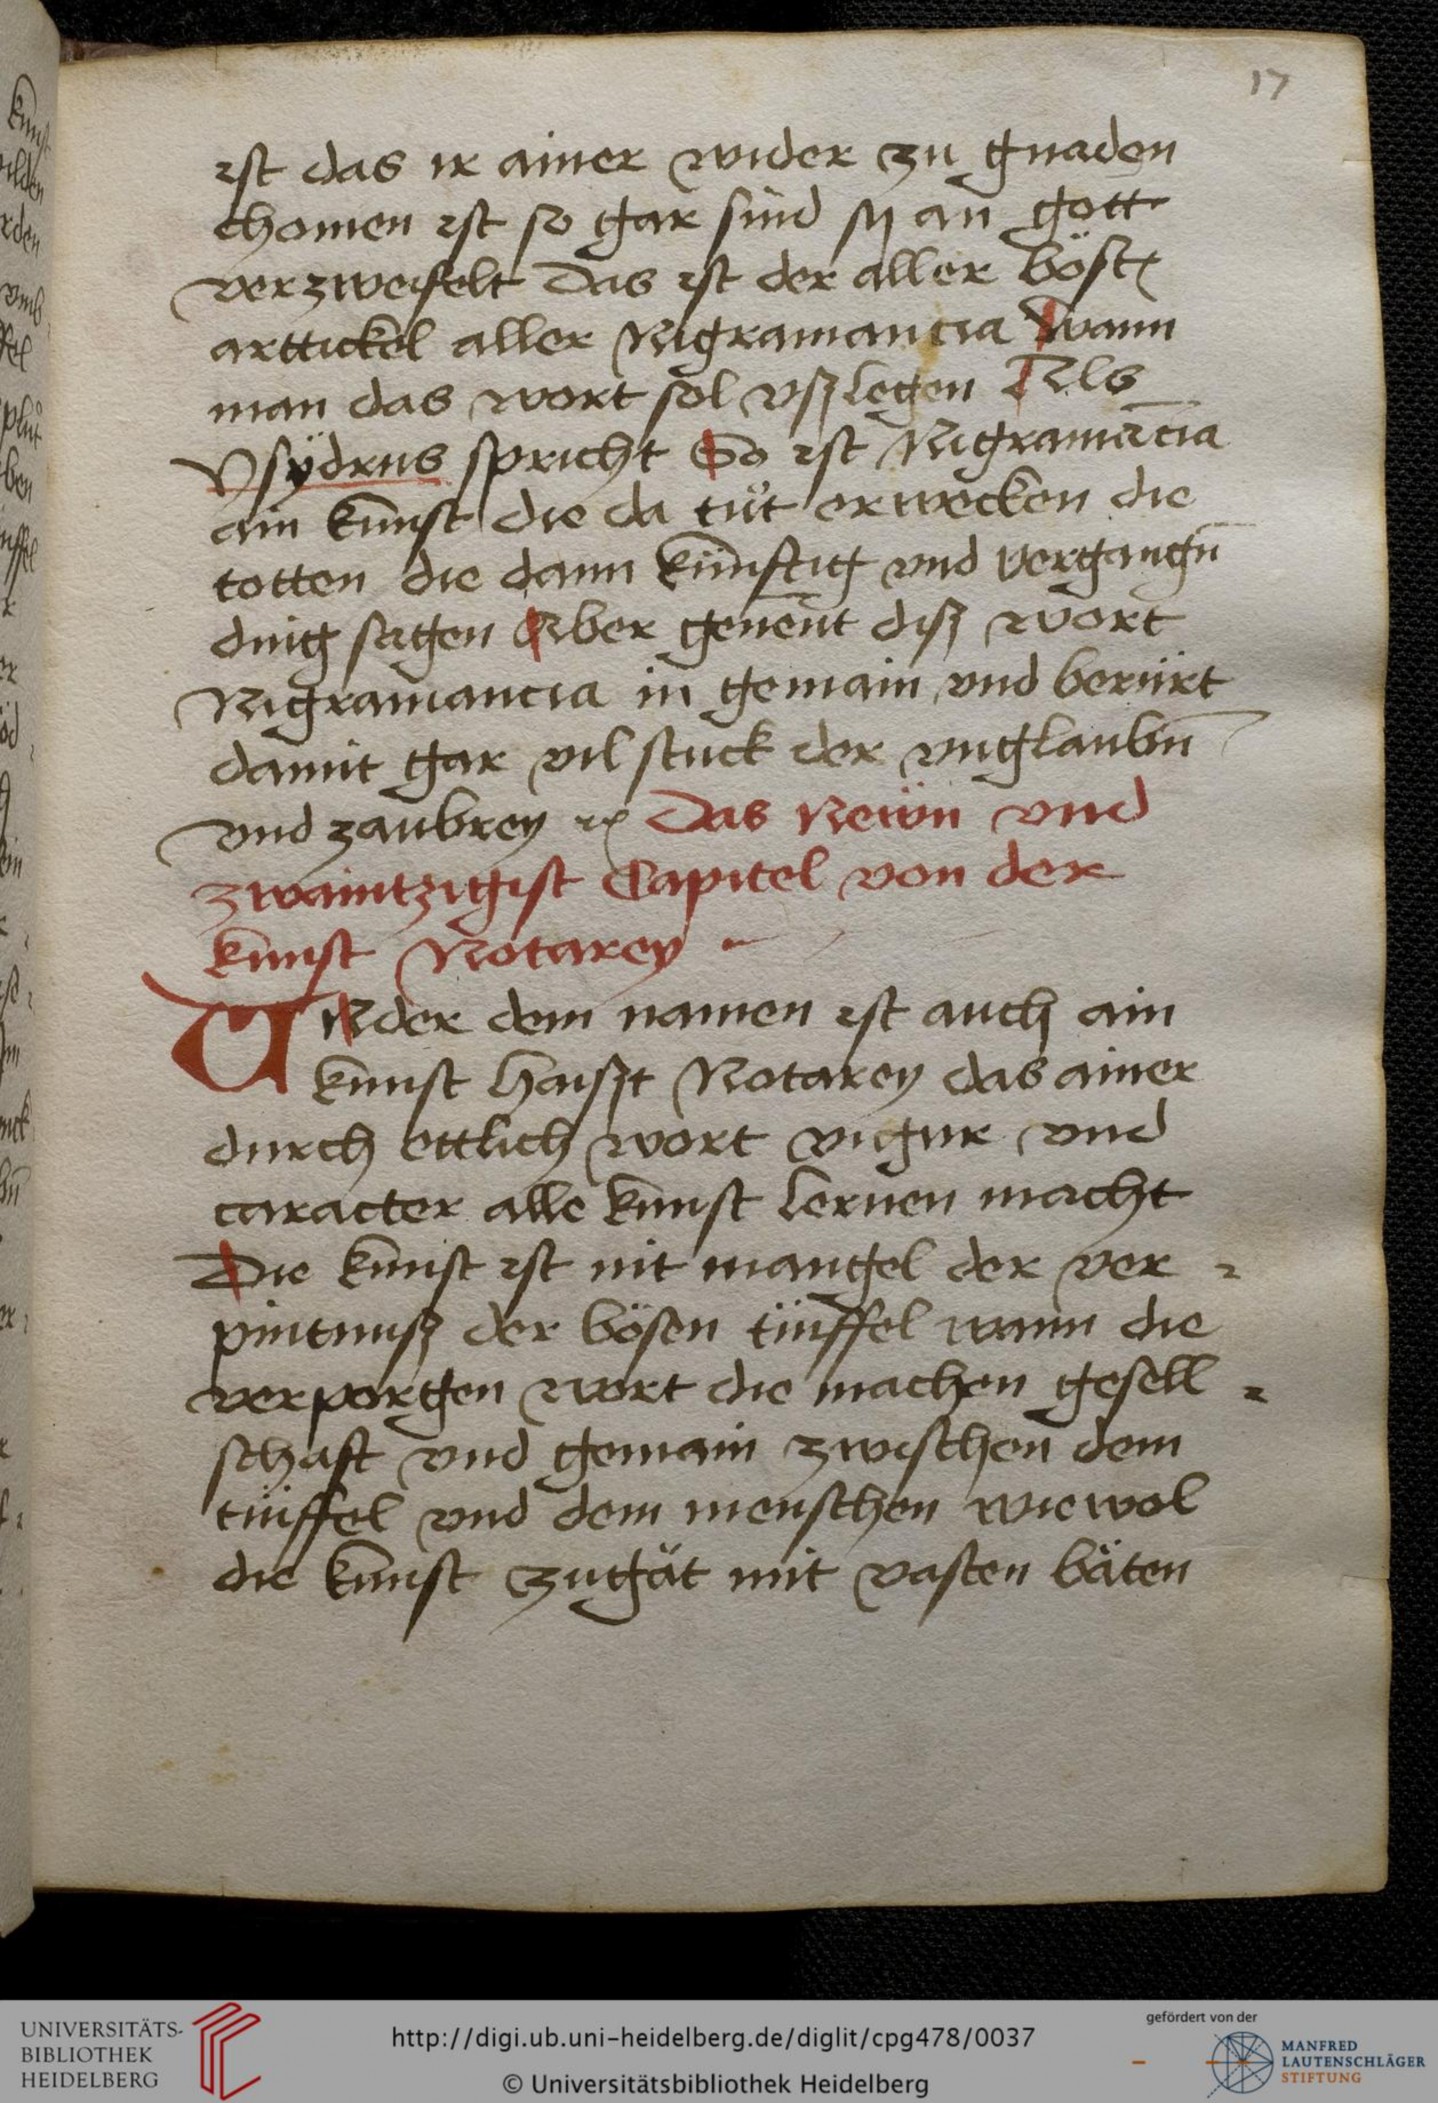 17
ist das ir ainer wider zu gnaden
chomen ist so gar sind sy an gott
verzweifelt Das ist der aller böst
arttickel aller Nigramancia Wann
man das wort sol vßlegen Als
Ysÿdrus spricht So ist Nigramācia
ain kunst die da tůt erwecken die
totten die dann künftig vnd vergangn̄
ding sagen Aber genēnt diß wort
Nigramancia in gemain vnd berürt
damit gar vil stuck der vnglaubn̄
vnd zaubrey Das Newn vnd
zwaintzigist Capitel von der
kunst Notarey
VNder dem namen ist auch ain
kunst haißt Notarey das ainer
durch ettlich wort vigur vnd
caracter alle kunst lernen macht
Die kunst ist nit mangel der ver
pintnuß der bösen tüffel wann die
verporgen wort die machen gesell
schaft vnd gemain zwischen dem
tüffel vnd dem menschen wiewol
die kunst zugät mit vasten bäten
UNIVERSITÄTS-
BIBLIOTHEK
HEIDELBERG
http://digi.ub.uni-heidelberg.de/diglit/cpg478/0037
© Universitätsbibliothek Heidelberg
gefördert von der
MANFRED
LAUTENSCHLÄGER
STIFTUNG